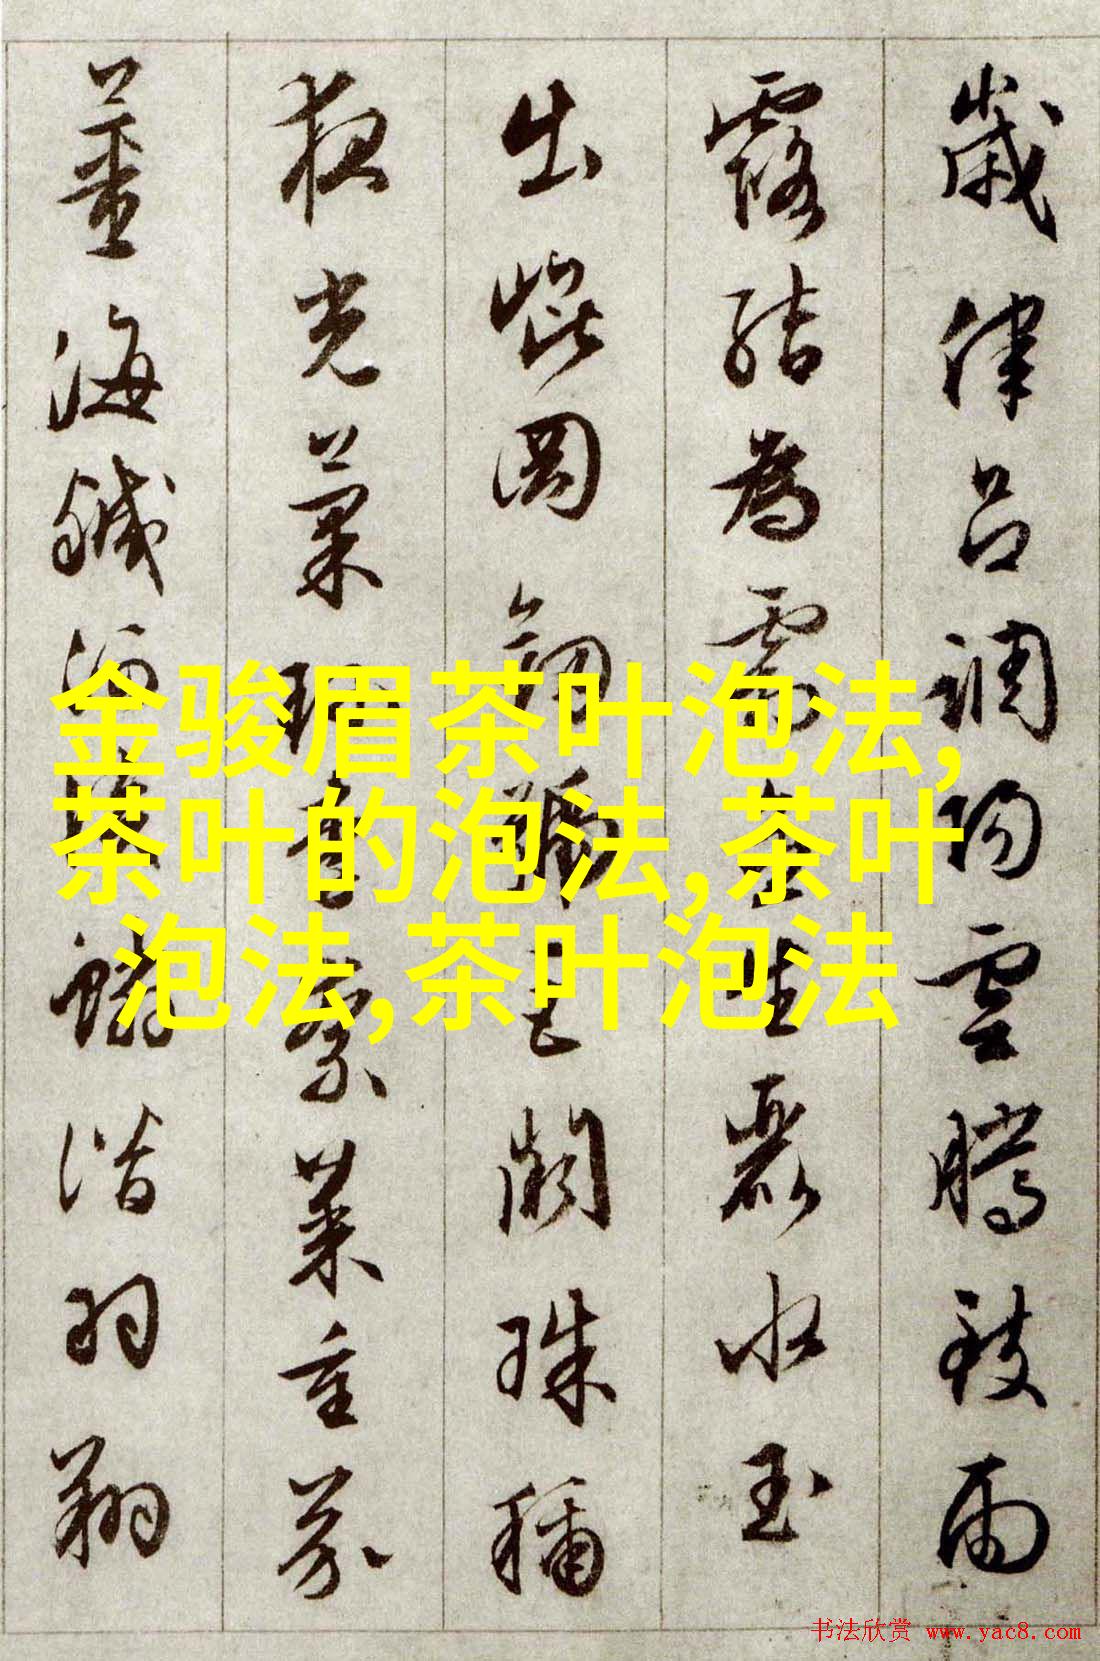 歲律呂調陽雲騰致雨
露結為霜金生麗水玉
出崐岡劍號巨闕珠稱
夜光菓珎李柰菜重芥
薑海鹹河淡鱗潛羽翔
金骏眉茶叶泡法,
茶叶的泡法,茶叶
泡法,茶叶泡法
书法欣赏 www.yac8.com